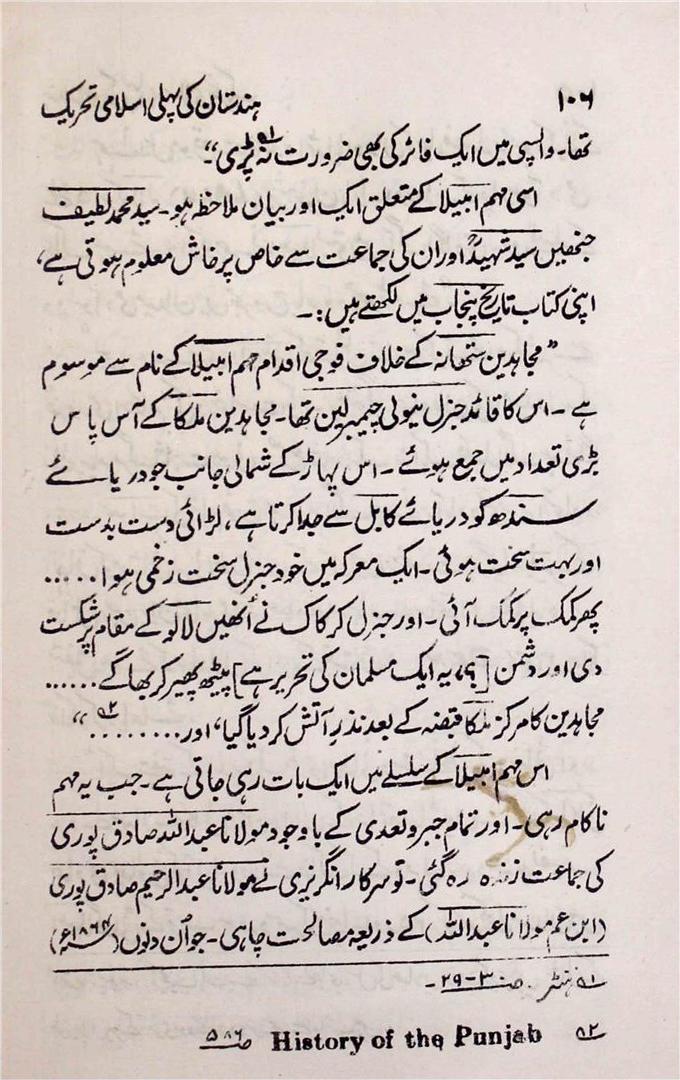 ۱۰۶ ہندستان کی پہلی اسلامی تحریک
تھا۔ واپسی میں ایک فائر کی بھی ضرورت نہ پڑی۵۱۔"
اسی مہم امبیلا کے متعلق ایک اور بیان ملاحظہ ہو۔ سید محمد لطیف
جنھیں سید شہیدؒ اور ان کی جماعت سے خاص پرخاش معلوم ہوتی ہے،
اپنی کتاب تاریخ پنجاب میں لکھتے ہیں:۔
"مجاہدین ستھانہ کے خلاف فوجی اقدام مہم امبیلا کے نام سے موسوم
ہے۔ اس کا قائد جنرل نیولی چیمبرلین تھا۔ مجاہدین ملکا کے آس پاس
بڑی تعداد میں جمع ہوئے۔ اس پہاڑ کے شمالی جانب جو دریائے
سندھ کو دریائے کابل سے جدا کرتا ہے، لڑائی دست بدست
اور بہت سخت ہوئی۔ ایک معرکہ میں خود جنرل سخت زخمی ہوا.....
پھر کمک پر کمک آئی۔ اور جنرل کرکاک نے اُنھیں لالو کے مقام پر شکست
دی اور دشمن [؟، یہ ایک مسلمان کی تحریر ہے] پیٹھ پھیر کر بھاگے......
مجاہدین کا مرکز ملکا قبضہ کے بعد نذرِ آتش کر دیا گیا، اور........۵۲"
اس مہم امبیلا کے سلسلے میں ایک بات رہی جاتی ہے۔ جب یہ مہم
ناکام رہی۔ اور تمام جبر و تعدی کے باوجود مولانا عبداللہ صادق پوری
کی جماعت زندہ رہ گئی۔ تو سرکار انگریزی نے مولانا عبدالرحیم صادق پوری
(ابن عم مولانا عبداللہ) کے ذریعہ مصالحت چاہی۔ جو اُن دنوں (۱۸۶۴ء)
۵۱ ہنٹر۔ صـ ۳۰-۲۹۔
۵۲ History of the Punjab صـ ۵۸۶